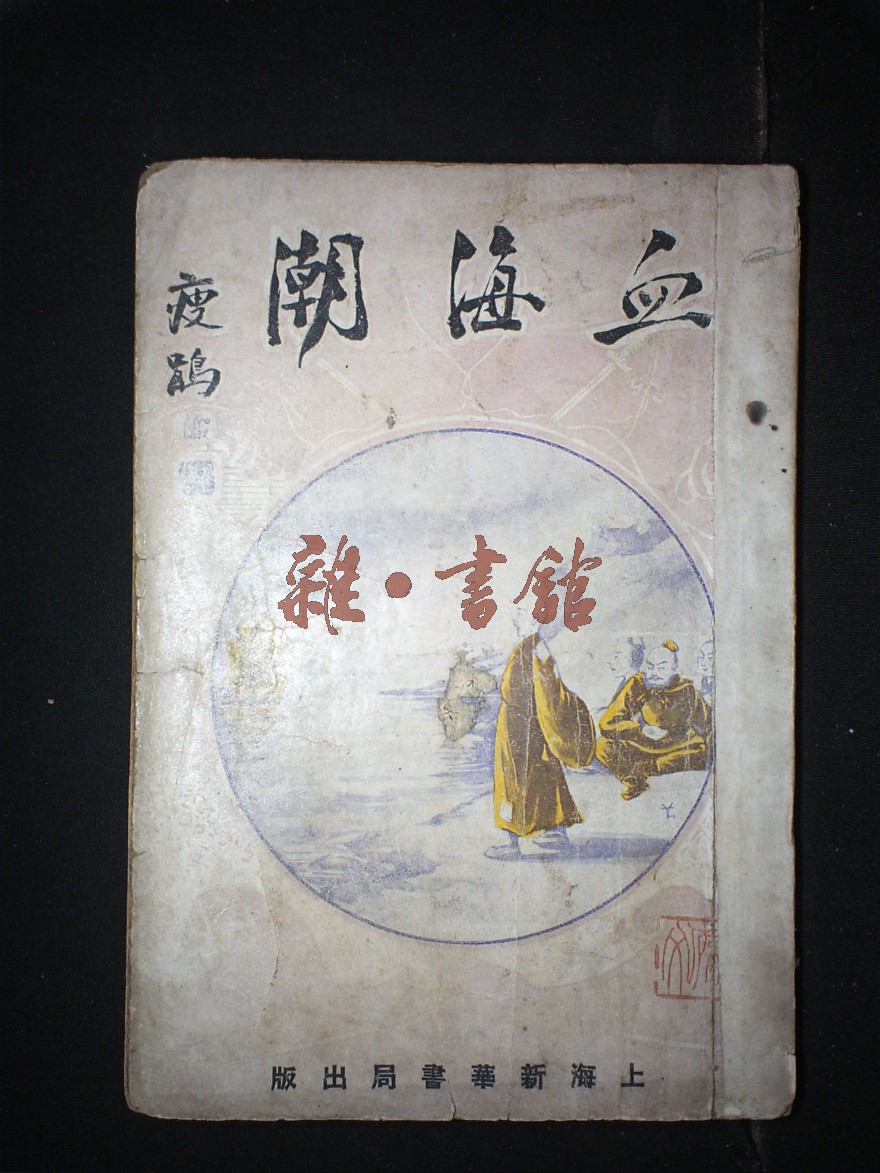 血海潮
瘦鵑
雜·書館
上海新華書局出版